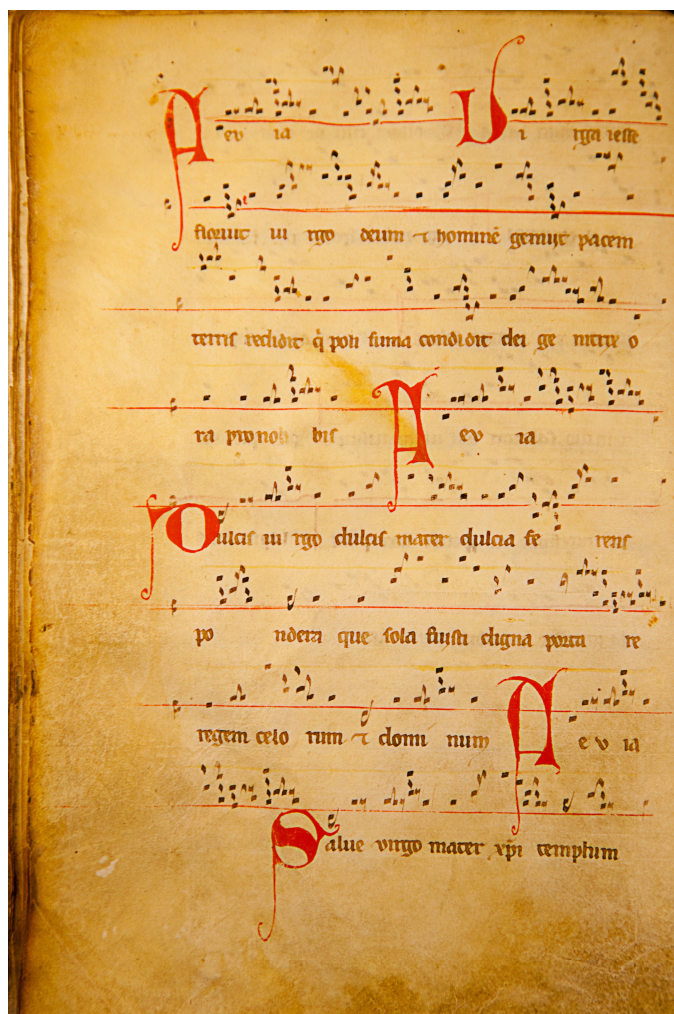 A ev ia Vi rga iesse
floruit vi rgo deum ⁊ hominē genuit pacem
terris reddidit q̇ poli suma condidit dei ge nitrix o
ra pro nobis bis A ev ia
Dulcis vi rgo dulcis mater dulcia fe rens
po ndera que sola fuisti digna porta re
regem celo rum ⁊ domi num A e v ia
Salue virgo mater xp̄i templum